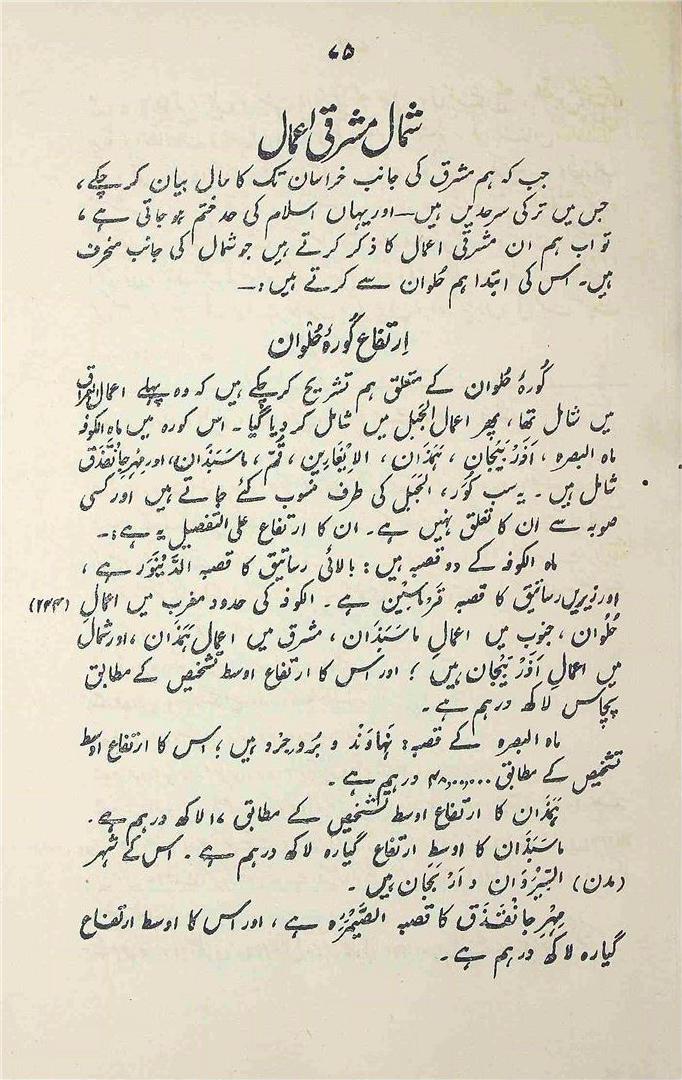 ۷۵
شمال مشرقی اعمال
جب کہ ہم مشرق کی جانب خراسان تک کا حال بیان کر چکے،
جس میں ترکی سرحدیں ہیں — اور یہاں اسلام کی حد ختم ہو جاتی ہے،
تو اب ہم ان مشرقی اعمال کا ذکر کرتے ہیں جو شمال کی جانب منحرف
ہیں۔ اس کی ابتدا ہم حُلوان سے کرتے ہیں :—
اِرتفاع کُورۂ حُلوان
کُورۂ حُلوان کے متعلق ہم تشریح کر چکے ہیں کہ وہ پہلے اعمال العراق
میں شامل تھا، پھر اعمال الجبل میں شامل کر دیا گیا۔ اس کورہ میں ماہ الکوفہ
ماہ البصرہ، آذَرْبَیْجان، ہَمَذَان، الاِیْغارین، قُم، ماسَبَذان، اور مِہْرِجَانْقَذَق
شامل ہیں۔ یہ سب کُوَر، الجَبَل کی طرف منسوب کئے جاتے ہیں اور کسی
صوبہ سے ان کا تعلق نہیں ہے۔ ان کا ارتفاع علی التفصیل یہ ہے :—
ماہ الکوفہ کے دو قصبہ ہیں : بالائی رساتیق کا قصبہ الدَّیْنَوَر ہے،
اور زیریں رساتیق کا قصبہ قَرْمَاسِیْن ہے۔ الکوفہ کی حدود مغرب میں اعمالِ (۲۴۴)
حُلْوان، جنوب میں اعمالِ ماسَبَذان، مشرق میں اعمالِ ہَمَذَان، اور شمال
میں اعمالِ آذَرْبَیْجان ہیں ؛ اور اس کا ارتفاع اوسط تشخیص کے مطابق
پچاس لاکھ درہم ہے۔
ماہ البصرہ کے قصبہ : نَہاوَنْد و بروجرد ہیں ؛ اس کا ارتفاع اوسط
تشخیص کے مطابق ۴۸,۰۰,۰۰۰ درہم ہے۔
ہَمَذَان کا ارتفاع اوسط تشخیص کے مطابق ۱۷ لاکھ درہم ہے۔
ماسَبَذَان کا اوسط ارتفاع گیارہ لاکھ درہم ہے۔ اس کے شہر
(مدن) السِّیْرَوَان و اَرْبُجَان ہیں۔
مِہْرِجَانْقَذَق کا قصبہ الصَّیْمَرَہ ہے، اور اس کا اوسط ارتفاع
گیارہ لاکھ درہم ہے۔